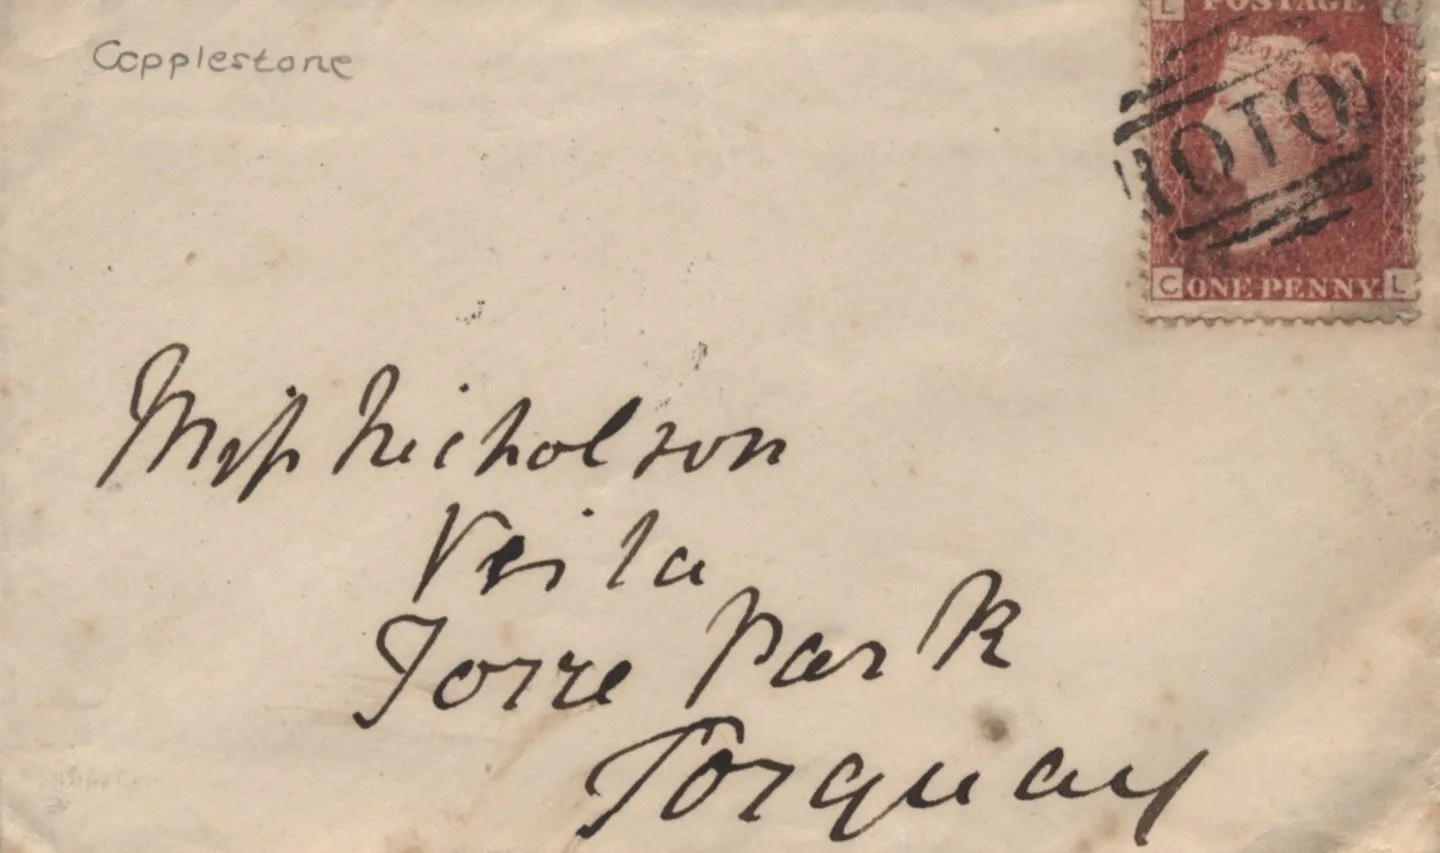 Copplestone
L POSTAGE C
010
C ONE PENNY L
Miss Nicholson
Torre Park
Torquay